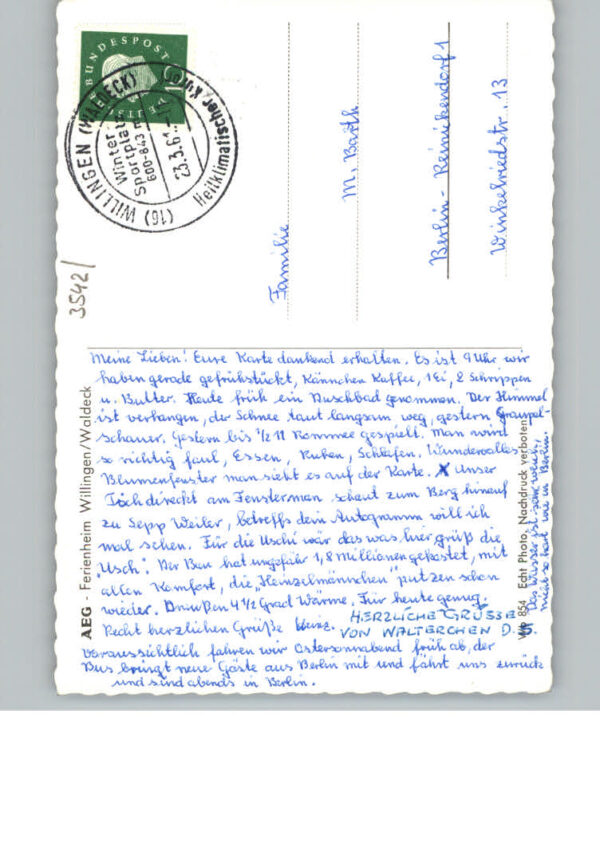 DEUTSCHE BUNDESPOST
(16) WILLINGEN (WALDECK)
Heilklimatischer Kurort
Winter-
Sportplatz
600-843 m
23.3.6
3542/
Familie
M. Barth
Berlin - Reinickendorf 1
Winkelriedstr. 13
Meine Lieben! Eure Karte dankend erhalten. Es ist 9 Uhr wir
haben gerade gefrühstückt, Kännchen Kaffee, 1 Ei, 2 Schrippen
u. Butter. Heute früh ein Duschbad genommen. Der Himmel
ist verhangen, der Schnee taut langsam weg, gestern Graupel-
schauer. Gestern bis 1/2 11 Rommee gespielt. Man wird
so richtig faul, Essen, Ruhen, Schlafen. Wundervolles
Blumenfenster man sieht es auf der Karte. X Unser
Tisch direckt am Fenster man schaut zum Berg hinauf
zu Sepp Weiler, betreffs dein Autogramm will ich
mal sehen. Für die Uschi wär das was hier grüß die
"Usch". Der Bau hat ungefähr 1,8 Millionen gekostet, mit
allen Komfort, die "Heinzelmännchen" putzen schon
wieder. Draußen 4 1/2 Grad Wärme. Für heute genug.
Recht herzliche Grüße
HERZLICHE GRÜSSE
VON WALTERCHEN D.
Voraussichtlich fahren wir Ostersonnabend früh ab, der
Bus bringt neue Gäste aus Berlin mit und fährt uns zurück
und sind abends in Berlin.
Das Wasser ist sehr weich,
nicht so hart wie in Berlin.
AEG - Ferienheim Willingen/Waldeck
854 Echt Photo, Nachdruck verboten